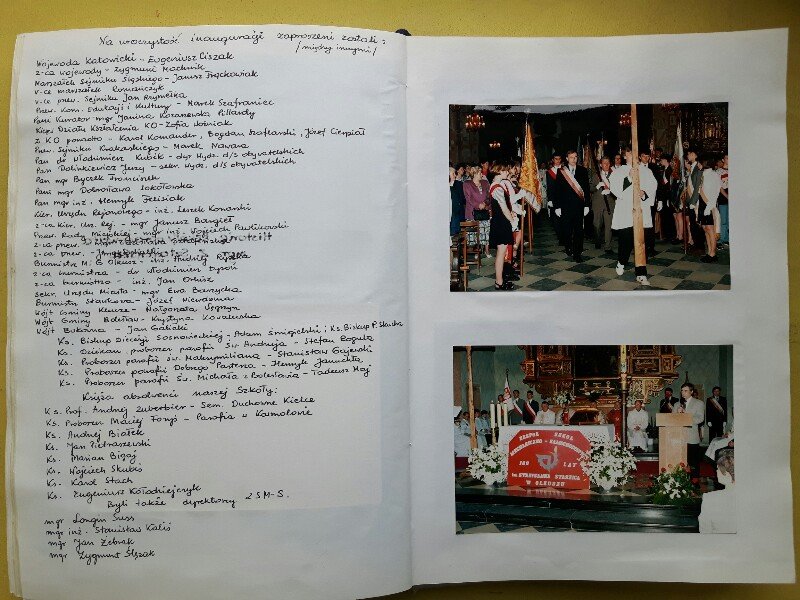 Na uroczystość inauguracji zaproszeni zostali:
/między innymi/
Wojewoda Katowicki - Eugeniusz Ciszak
z-ca wojewody - Zygmunt Machnik
Marszałek Sejmiku Śląskiego - Janusz Frąckowiak
v-ce marszałek Romańczyk
v-ce prew. Sejmiku Jan Krzymełka
Prew. Kom. Edukacji i Kultury - Marek Szafraniec
Pani Kurator mgr Janina Kazanowska Pillardy
Kier. Działu Kształcenia KO - Zofia Woźniak
z KO ponadto - Karol Komander, Bogdan Szaflarski, Józef Cierpiał
Prew. Sejmiku Krakowskiego - Marek Nawara
Pan dr Włodzimierz Kubik - dyr Wydz. d/s obywatelskich
Pan Dolinkiewicz Jerzy - sekr. Wydz. d/s obywatelskich
Pan mgr Byczek Franciszek
Pani mgr Dobrosława Sokołowska
Pan mgr inż. Henryk Felisiak
Kier. Urzędu Rejonowego - inż. Leszek Konarski
z-ca Kier. Urz. Rej. - mgr Janusz Bargieł
Prew. Rady Miejskiej - mgr inż. Wojciech Pawlikowski
z-ca prew.
z-ca prew. -
Burmistrz M. G. Olkusz - inż. Andrzej
z-ca burmistrza - dr Włodzimierz Łysoń
z-ca burmistrza - inż. Jan Orkisz
sekr. Urzędu Miasta - mgr Ewa Barzycka
Burmistrz Sławkowa - Józef Niewdana
Wójt Gminy Klucze - Małgorzata Węgrzyn
Wójt Gminy Bolesław - Krystyna Kowalewska
Wójt Bukowna - Jan Galicki
Ks. Biskup Diecezji Sosnowieckiej - Adam Śmigielski i Ks. Biskup P. Skucha
Ks. Dziekan, proboszcz parafii Św. Andrzeja - Stefan Rogula
Ks. Proboszcz parafii Św. Maksymiliana - Stanisław Gajewski
Ks. Proboszcz parafii Dobrego Pasterza - Henryk Januchta
Ks. Proboszcz parafii Św. Michała z Bolesławia - Tadeusz Maj
Księża absolwenci naszej Szkoły:
Ks. Prof. Andrzej Zuberbier - Sem. Duchowne Kielce
Ks. Proboszcz Maciej Faryś - Parafia w Kamolanie
Ks. Andrzej Białek
Ks. Jan Pietraszewski
Ks. Marian Bigaj
Ks. Wojciech Skubis
Ks. Karol Stach
Ks. Eugeniusz Kołodziejczyk
Byli także dyrektorzy ZSM-S.
mgr Longin Suss
mgr inż. Stanisław Kaliś
mgr Jan Żebrak
mgr Zygmunt Ślęzak
ZESPÓŁ SZKÓŁ
MECHANICZNO - SAMOCHODOWYCH
100 LAT
im STANISŁAWA STASZICA
W OLKUSZU